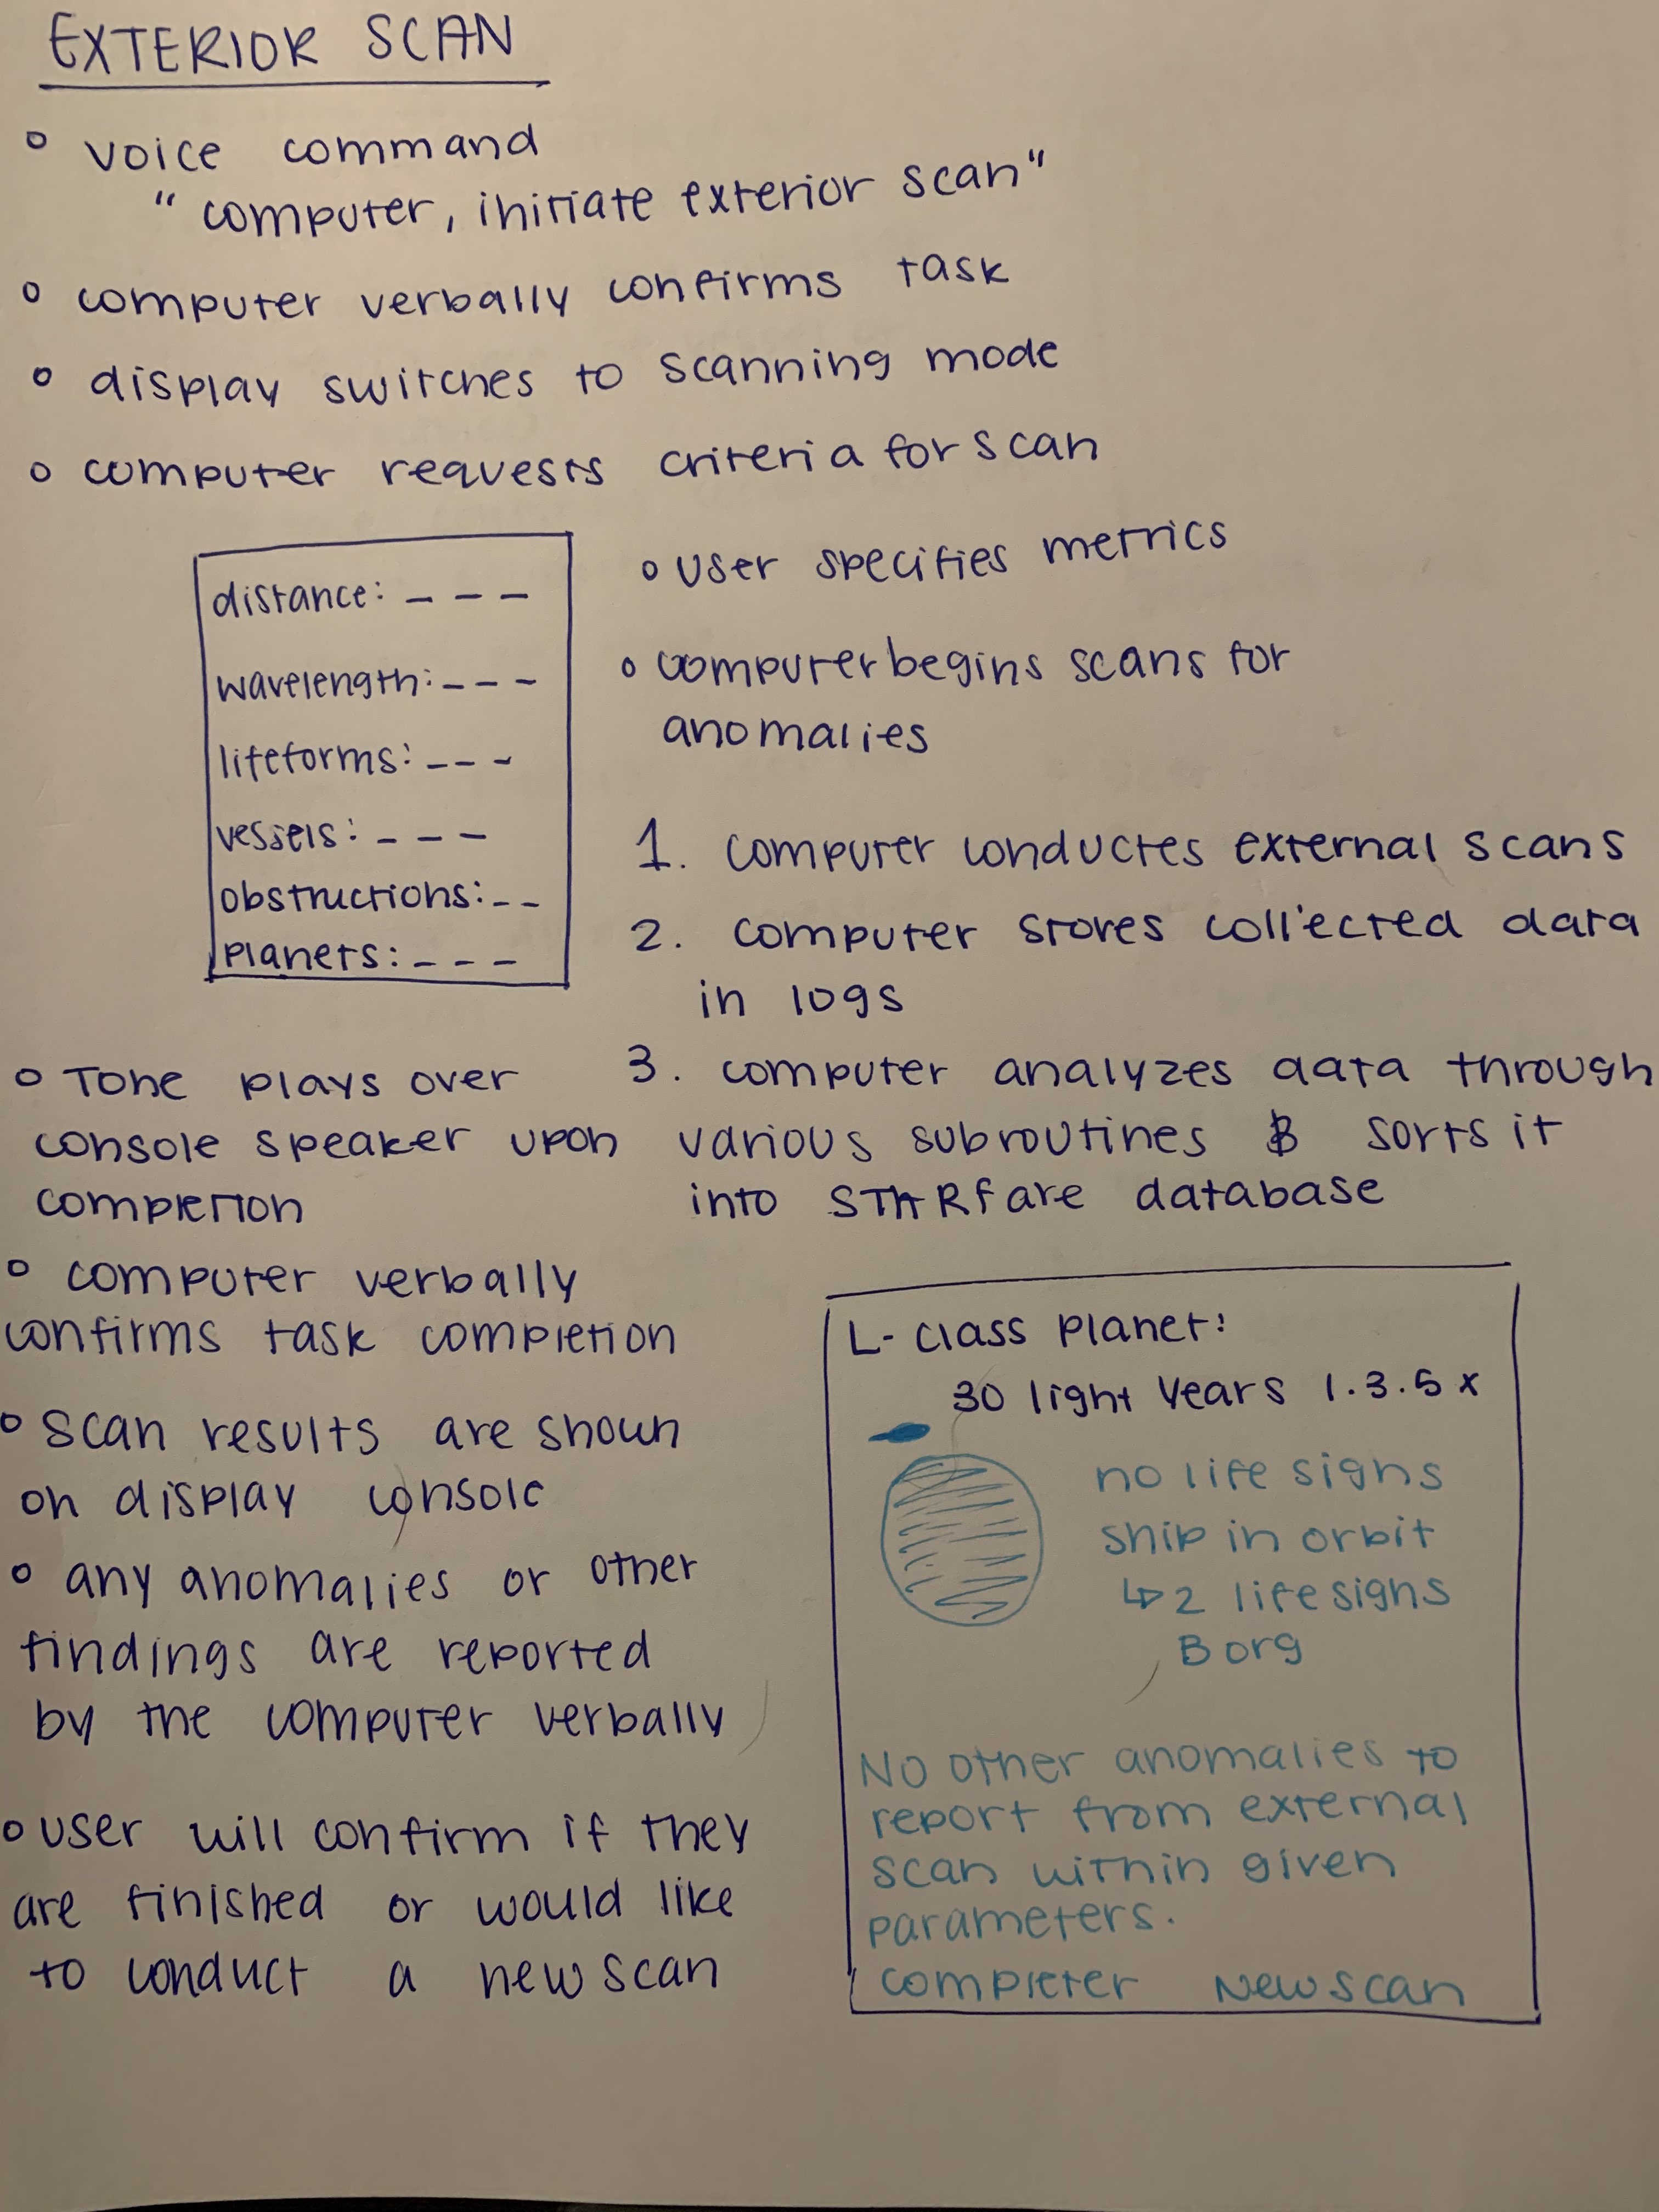 EXTERIOR SCAN
° voice command
" computer, initiate exterior scan"
° computer verbally confirms task
° display switches to scanning mode
° computer requests criteria for scan
distance: _ _ _
wavelength: _ _ _
lifeforms: _ _ _
vessels: _ _ _
obstructions: _ _
planets: _ _ _
° user specifies metrics
° computer begins scans for
anomalies
1. computer conductes external scans
2. computer stores collected data
in logs
3. computer analyzes data through
various subroutines & sorts it
into STARfare database
° Tone plays over
console speaker upon
completion
° computer verbally
confirms task completion
° scan results are shown
on display console
° any anomalies or other
findings are reported
by the computer verbally
° user will confirm if they
are finished or would like
to conduct a new scan
L-class planet:
30 light years 1.3.5 x
no life signs
ship in orbit
↳ 2 life signs
Borg
No other anomalies to
report from external
scan within given
parameters.
completer New scan